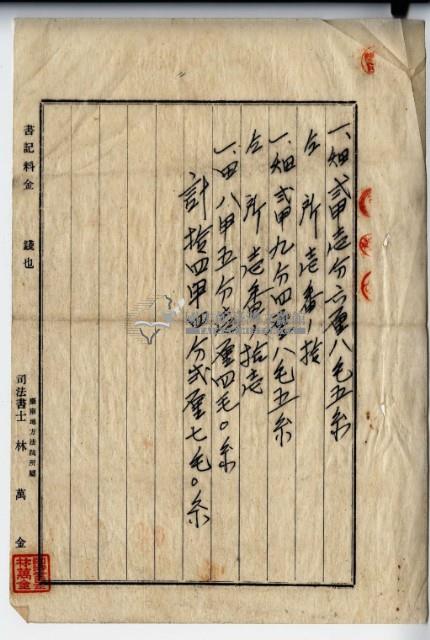 一、畑 貳甲壱分六厘八毛五糸
仝所壱番ノ拾
一、畑 貳甲九分四厘八毛五糸
仝所壱番ノ拾壱
一、田 八甲五分壱厘四毛〇糸
計拾四甲四分弍厘七毛〇糸
書記料金 錢也
臺南地方法院所屬
司法書士 林萬金